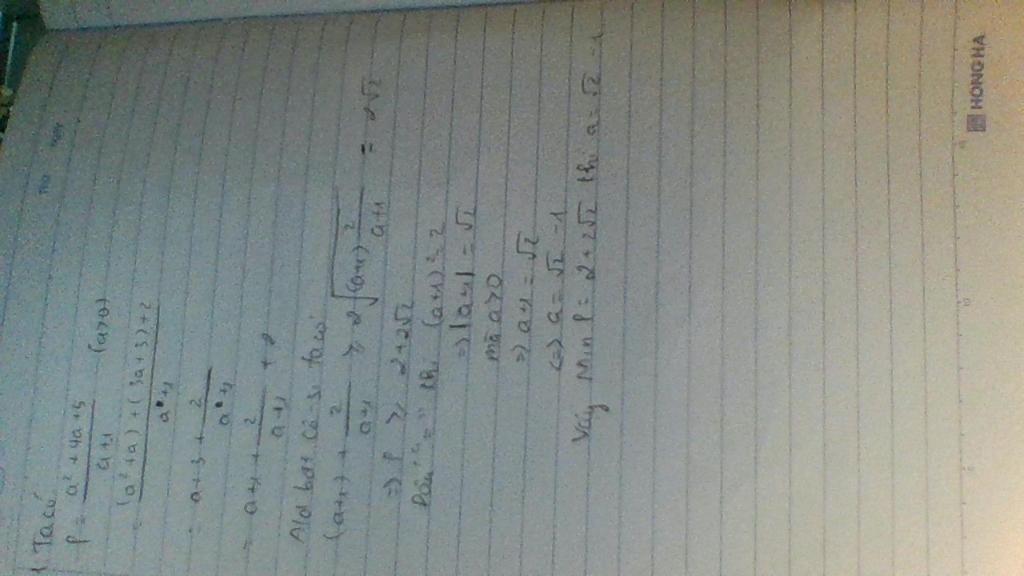 1. Ta có
P = a² + 4a + 5 / a+1 (a>0)
= (a² + a) + (3a + 3) + 2 / a+1
= a + 3 + 2 / a+1
= a+1 + 2 / a+1 + 2
Ád bđt Cô-si ta có
(a+1) + 2 / a+1 ≥ 2√(a+1) 2 / a+1 = 2√2
=> P ≥ 2+2√2
Dấu "=" khi (a+1)² = 2
=> |a+1| = √2
mà a>0
=> a+1 = √2
<=> a = √2 - 1
Vậy Min P = 2+2√2 khi a = √2 - 1
HONG HA